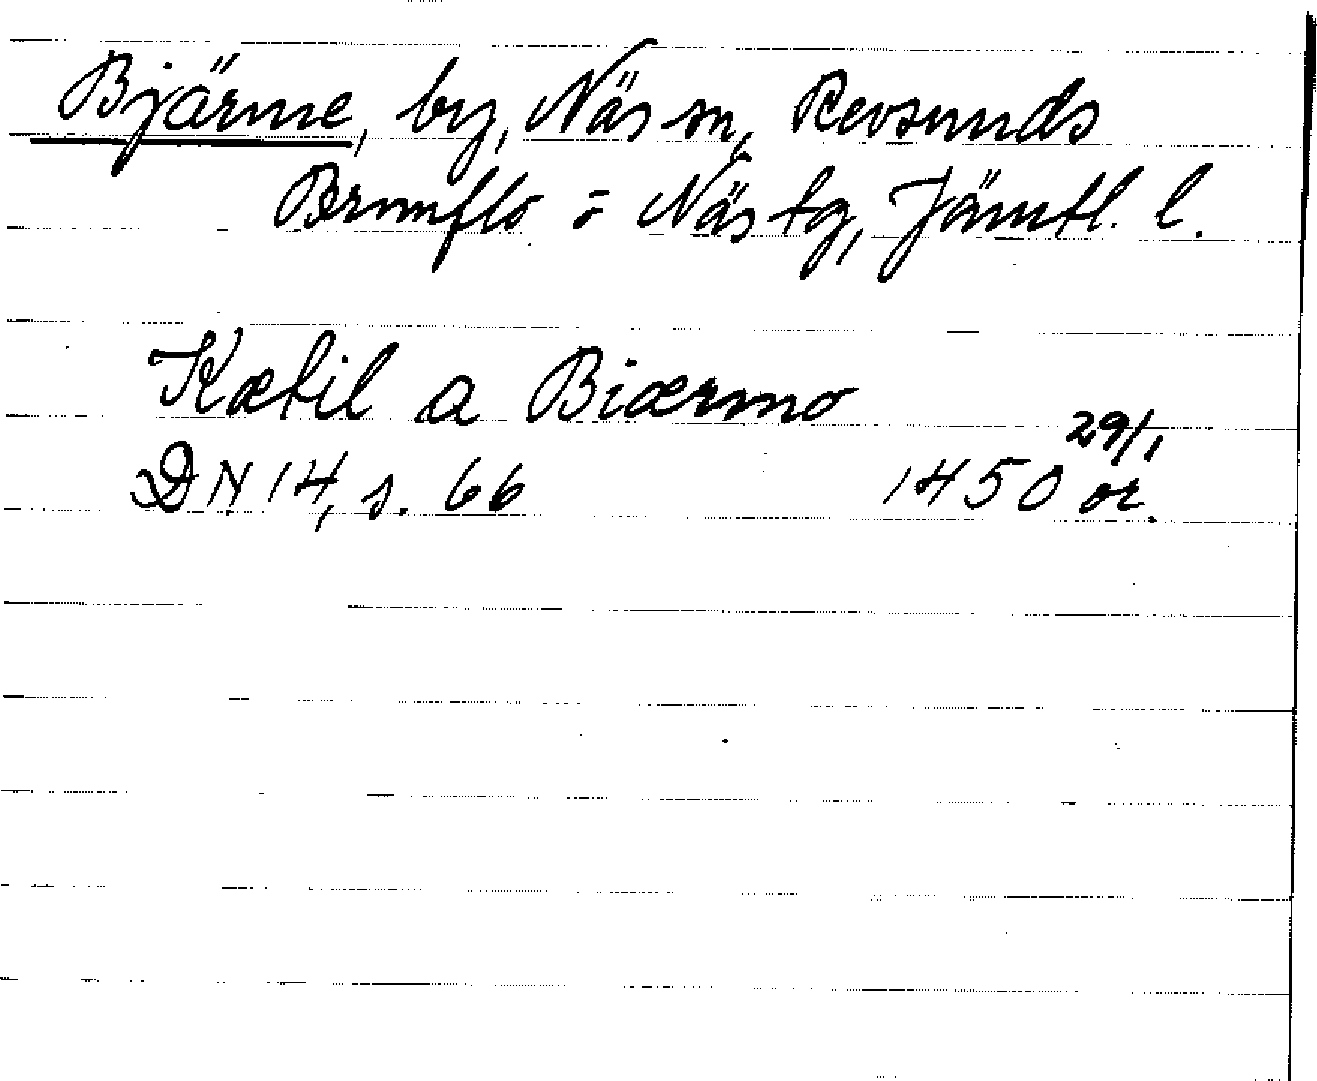 Bjärme, by, Näs sn, Revsunds
Brunflo o Näs tg, Jämtl. l.
Kætil a Biærmo
29/1
DN 14, s. 66 1450 or.